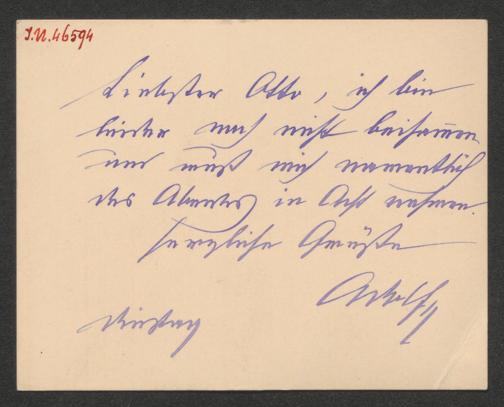 I.N. 46594
Liebster Otto, ich bin
leider noch nicht beisam̄en
und muß mich namentlich
des Abends in Acht nehmen.
Herzliche Grüße
Adolf
Dienstag